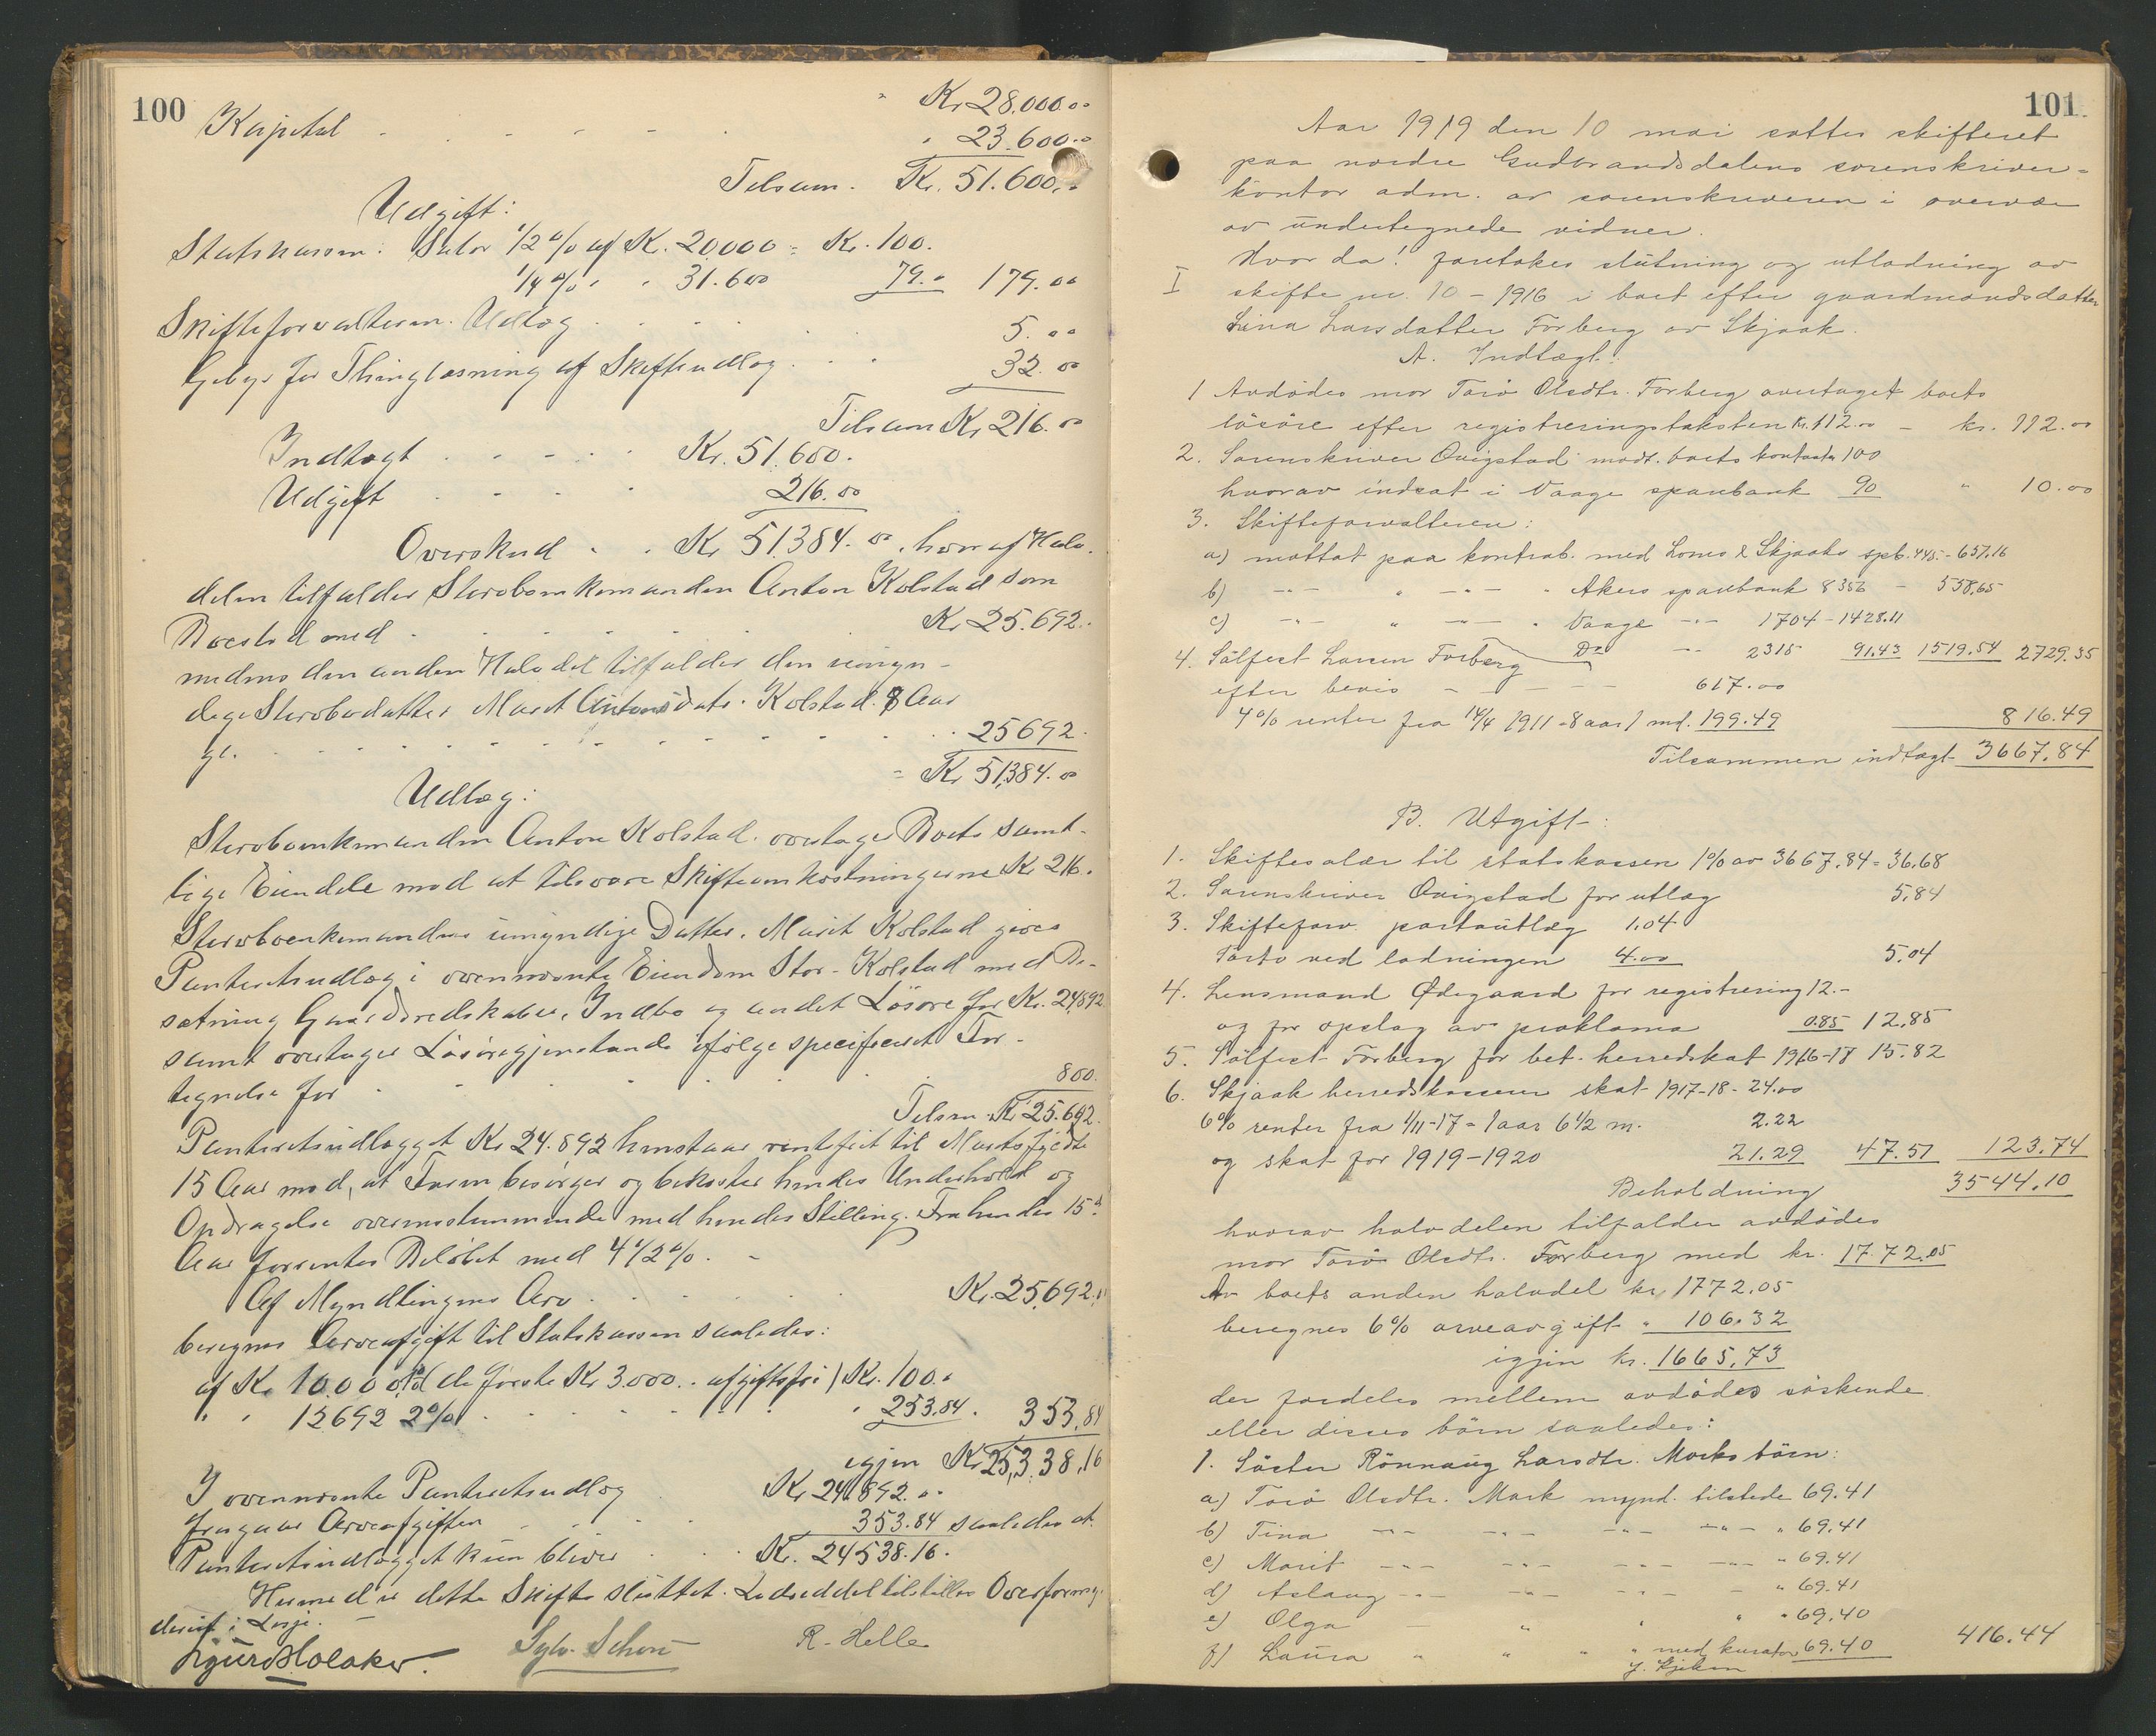 100
Kapital . . . . . " Kr 28.000.00
" 23.600.00
Tilsam. Kr. 51.600,00
Udgift:
Statskassen: Salær 1/2 % af Kr. 20000 = Kr. 100.
1/4 % " " 31.600 79.00 179.00
Skifteforvalteren. Udlæg . . . . 5.00
Gebyr for Thinglæsning af Skifteudlæg . . . 32.00
Tilsam Kr 216.00
Indtægt . . . . . Kr. 51,600.
Udgift . . . . 216.00
Overskud . . Kr 51384.00, hvoraf Halv-
delen tilfalder Sterboenkemanden Anton Kolstad som
Boeslod med . . . . . . Kr 25.692.
medens den anden Halvdel tilfalder den umyn-
dige Sterbodatter Marit Antonsdatr. Kolstad. 8 Aar
gl. . . . . . . . . . . 25692.
= Kr 51,384.00
Udlæg:
Sterboenkemanden Anton Kolstad overtager Boets samt-
lige Eiendele mod at tilsvare Skifteomkostningerne Kr 216.
Sterboenkemandens umyndige Datter, Marit Kolstad gives
Panteretsudlæg i ovennævnte Eiendom Stor-Kolstad med Be-
sætning Gaardsredskaber, Indbo og andet Løsøre for Kr. 24,892
samt overtager Løsøregjenstande ifølge specificeret For-
tegnelse for . . . . . . . 800.
Tilsm. Kr 25.692.
Panteretsudlægget Kr 24.892 henstaar rentefrit til Marits fyldte
15 Aar mod, at Faren besørger og bekoster hendes Underhold og
Opdragelse overensstemmende med hendes Stilling. Fra hendes 15de
Aar forrentes Beløbet med 4 1/2 %. -
Af Myndlingens Arv . . . . . Kr. 25,692.00
beregnes Arveafgift til Statskassen saaledes:
af Kr 10.000 (de første Kr 3.000.- afgiftsfri) Kr. 100.0
" " 12692 2% . . . . . . " 253.84. 353.84
igjen Kr 25,338,16
I ovennævnte Panteretsudlæg Kr 24.892.00
fragaar Arveafgiften . . . . 353.84 saaledes at
Panteretsudlægget kun bliver . . Kr. 24538.16.
Hermed er dette Skifte sluttet. Lodseddel tilstilles Overformyn-
deriet i Lesje.
Sigurd Holaker. Sylv. Schou R. Helle
101.
Aar 1919 den 10 mai sattes skifteret
paa nordre Gudbrandsdalens sorenskriver-
kontor adm. av sorenskriveren i overvær
av undertegnede vidner.
Hvorda! foretokes slutning og utlodning av
I skifte nr. 10 - 1916 i boet efter gaardmandsdatter
Lina Larsdatter Forberg av Skjaak.
A. Indtægt:
1 Avdødes mor Torø Olsdtr. Forberg overtaget boets
løsøre efter registreringstaksten kr. 112.00 - kr. 112.00
2. Sorenskriver Qvigstad modt. boets kontanter 100
hvorav indsat i Vaage sparebank 90 " 10.00
3. Skifteforvalteren:
a) mottat paa kontrab. med Loms & Skjaaks spb. 445 - 657.16
b) -"- " -"- " Akers sparebank 8356 - 558.65
c) -"- " -"- " Vaage -"- 1704 - 1428.11
Do -"- 2315 91.43 1519.54 2729.35
4. Sålfest Larsen Forberg
efter bevis - - - - 617.00
4% renter fra 14/4 1911 - 8 aar 1 md. 199.49 816.49
Tilsammen indtægt 3667.84
B. Utgift:
1. Skiftesalær til statskassen 1% av 3667.84 = 36.68
2. Sorenskriver Qvigstad for utlæg 5,84
3. Skifteforv. portoutlæg 1.04
Porto ved lodningen 4.00 5.04
4. Lensmand Ødegaard for registrering 12.-
og for opslag av proklama 0.85 12.85
5. Sålfest Forberg for bet. herredskat 1916-17 15.82
6. Skjaak herredskassen skat 1917-18 - 24.00
6% renter fra 1/11-17 - 1 aar 6 1/2 m. 2.22
og skat for 1919-1920 21.29 47.51 123.74
Beholdning 3544.10
hvorav halvdelen tilfalder avdødes
mor Torø Olsdtr. Forberg med kr. 1772.05
Av boets anden halvdel kr. 1772.05
beregnes 6% arveavgift " 106.32
igjen kr. 1665,73
der fordeles mellem avdødes søskende
eller disses børn saaledes:
1. Søster Rønnaug Larsdtr. Marks børn:
a) Torø Olsdtr. Mark mynd. tilstede 69.41
b) Tina -"- -"- -"- -"- " 69.41
c) Marit -"- -"- -"- -"- " 69.41
d) Aslaug -"- -"- -"- - " 69.41
e) Olga - " " " " 69.40
f) Laura " " " " med kurator 69.40 416.44